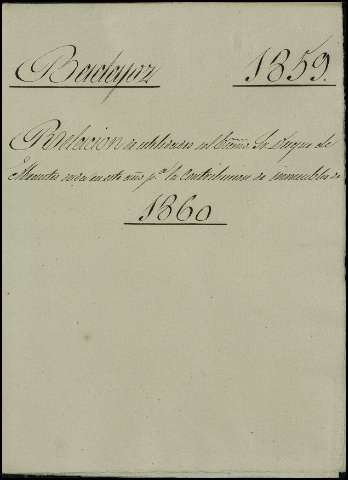 Badajoz 1859.
Relacion de utilidades del Excmo. Sr. Duque de
en este año pa. la Contribucion de inmuebles de
1860